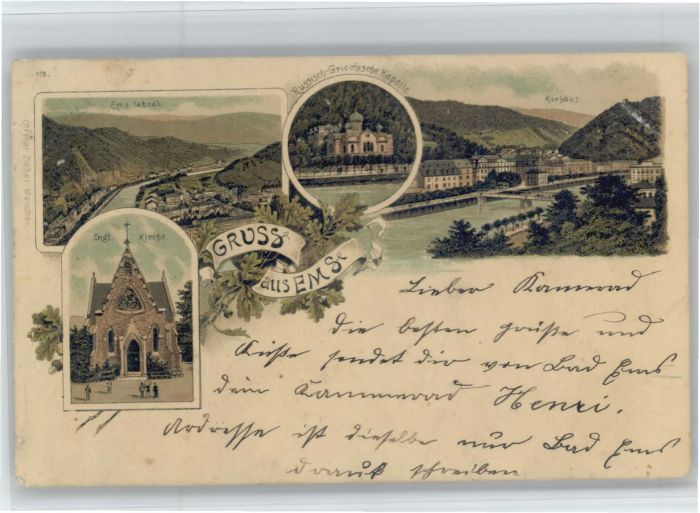 178.
Ottmar Zieher München
Ems, lahnab
Russisch-Griechische Kapelle
Kurhaus.
Engl. Kirche
GRUSS
aus EMS
Lieber Kamerad
die besten grüße und
Küße sendet dir von Bad Ems
dein Kammerad Henri.
Ardresse ist dieselbe nur Bad Ems
drauf schreiben